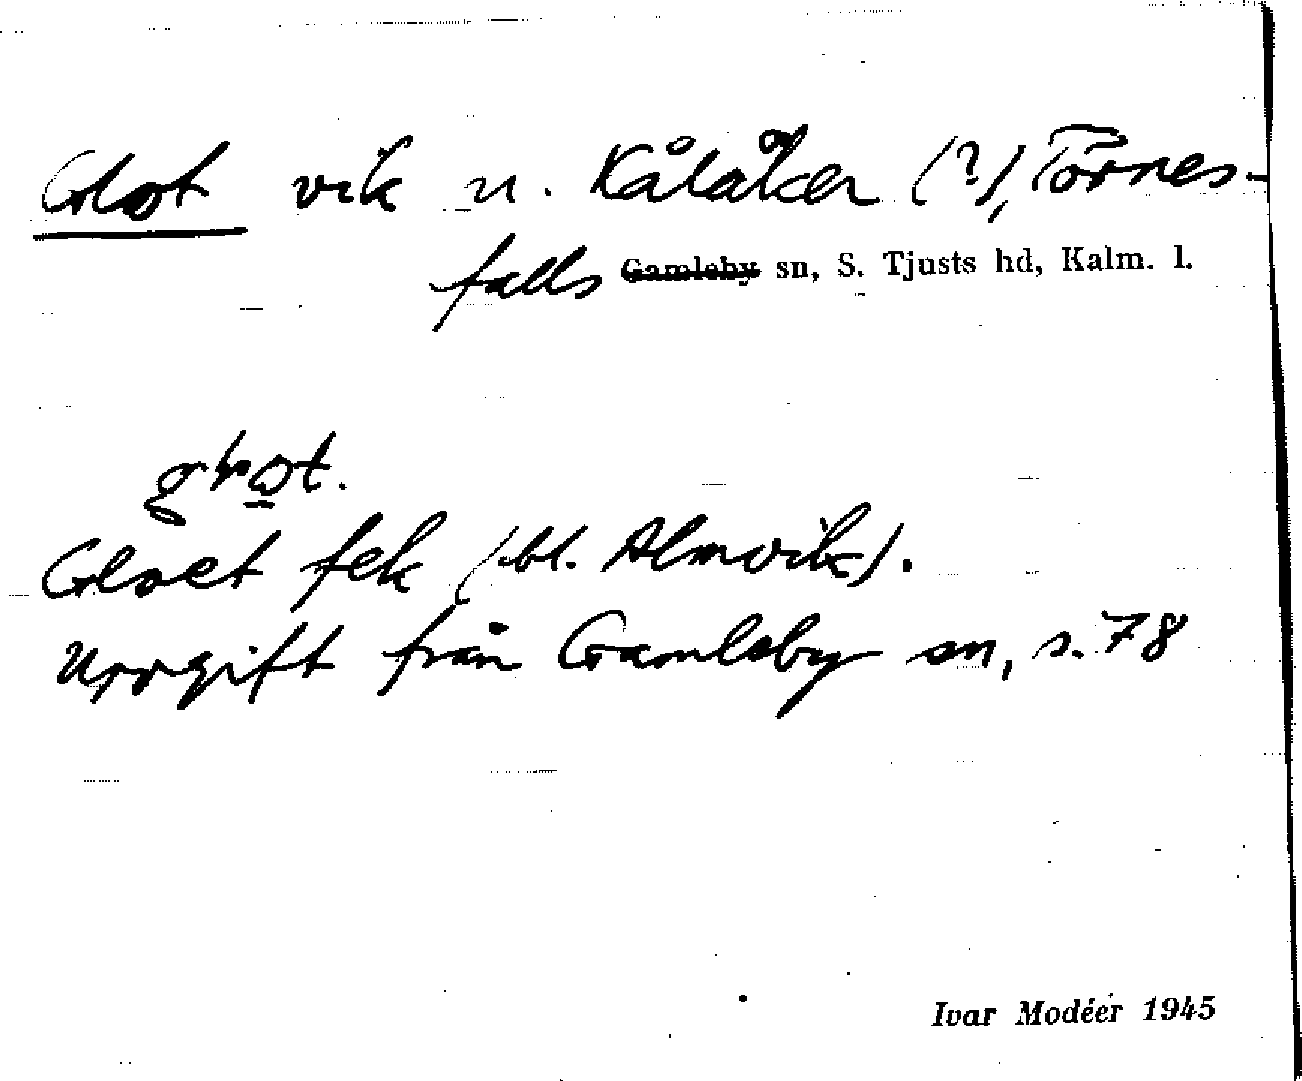 Gloet vik n. Kålåker (?), Törnes-
falls Gamleby sn, S. Tjusts hd, Kalm. l.
Gloet fek (bl. Almvik).
Uppgift från Gamleby sn, s. 78
Ivar Modéer 1945